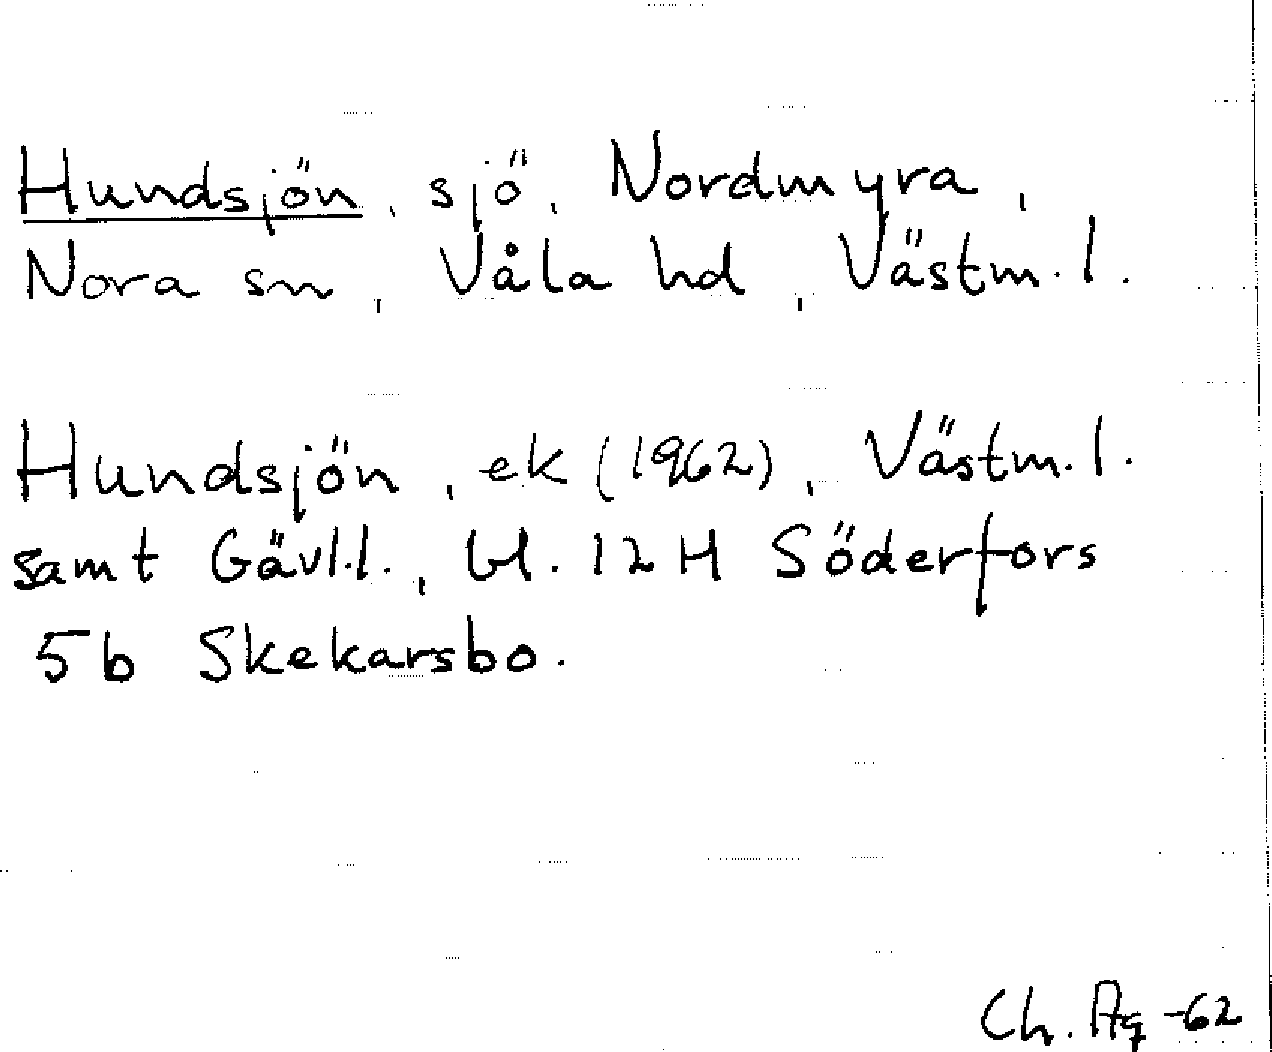 Hundsjön, sjö, Nordmyra,
Nora sn, Våla hd, Västm.l.
Hundsjön, ek (1962), Västm.l.
samt Gävl.l., bl. 12H Söderfors
5b Skekarsbo.
Ch. Ag -62